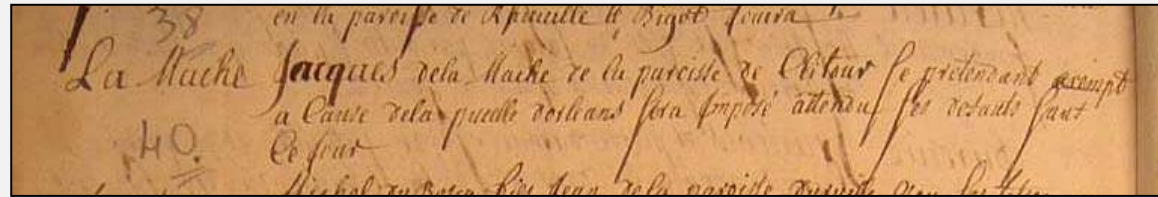 38
en la paroisse de Rauuille le Bigot Jouira
La Mache Jacques dela Mache de la paroisse de Clitour se pretendant exempt
a Cause dela pucelle dorleans sera Imposé attendu ses defauts sauf
40. Ce Jour
Michel du Bosc Jean dela paroisse